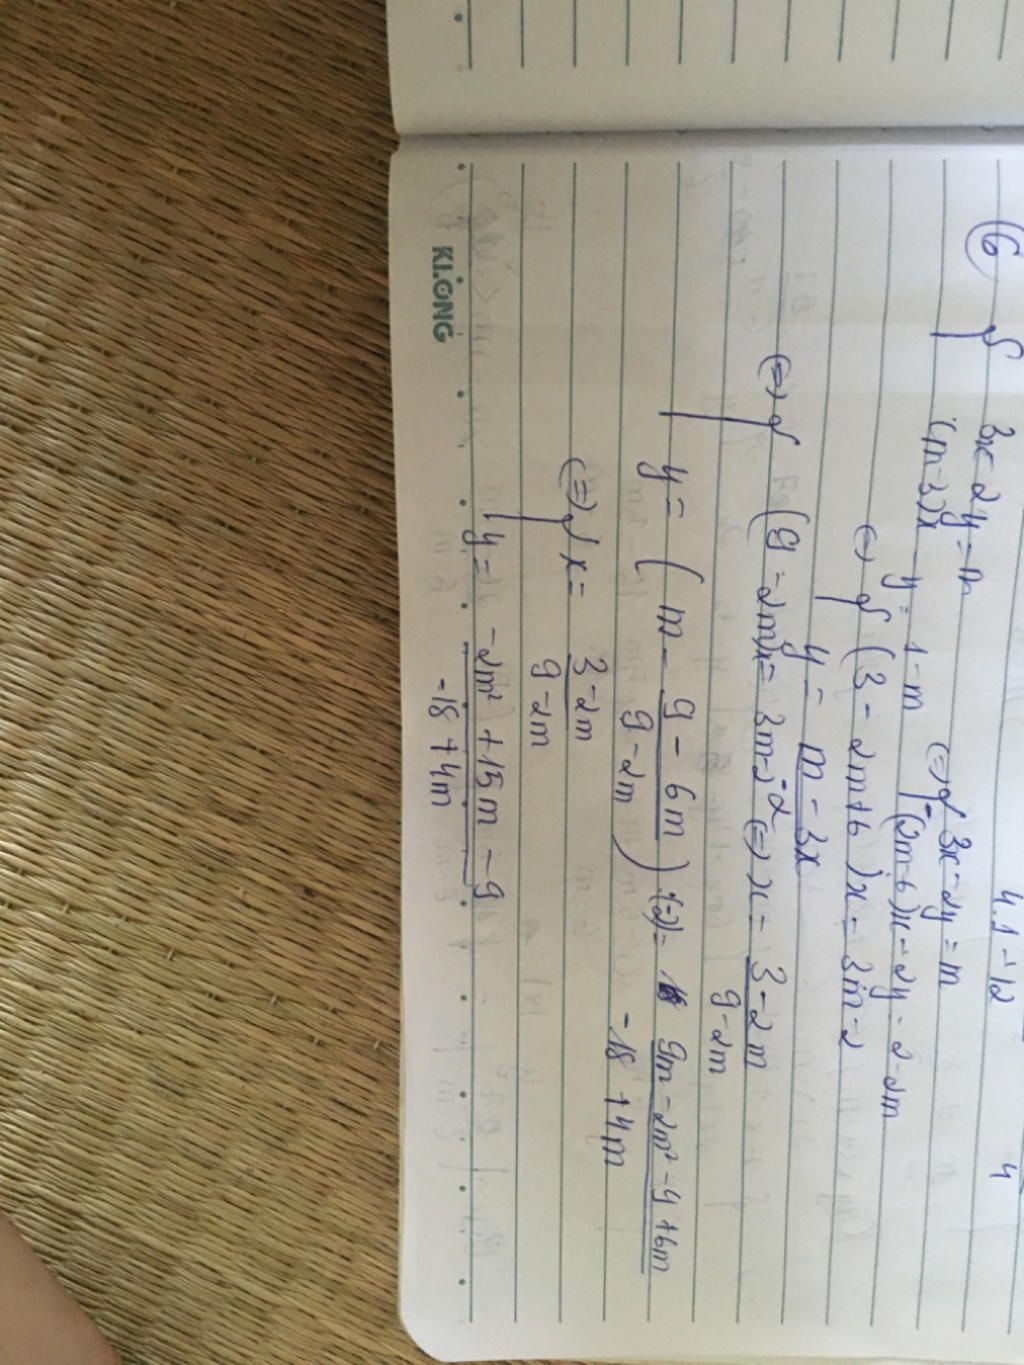 4.1 - 12
4
6 { 3x - 2y = m
(m-3)x - y = 1 - m
(=) { 3x - 2y = m
(2m-6)x - 2y = 2 - 2m
(=) { (3 - 2m + 6)x = 3m - 2
y = m - 3x / -2
(=) { (9 - 2m)x = 3m - 2 (=) x = 3 - 2m / 9 - 2m
y = ( m - 9 - 6m / 9 - 2m ) : (-2) = 9m - 2m² - 9 + 6m / -18 + 4m
(=) { x = 3 - 2m / 9 - 2m
y = -2m² + 15m - 9 / -18 + 4m
KLONG